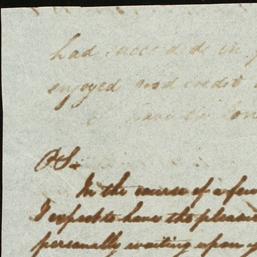 had
enjoyed good credit
P.S.
In the course of a few
I expect to have the pleasu
personally waiting upon y